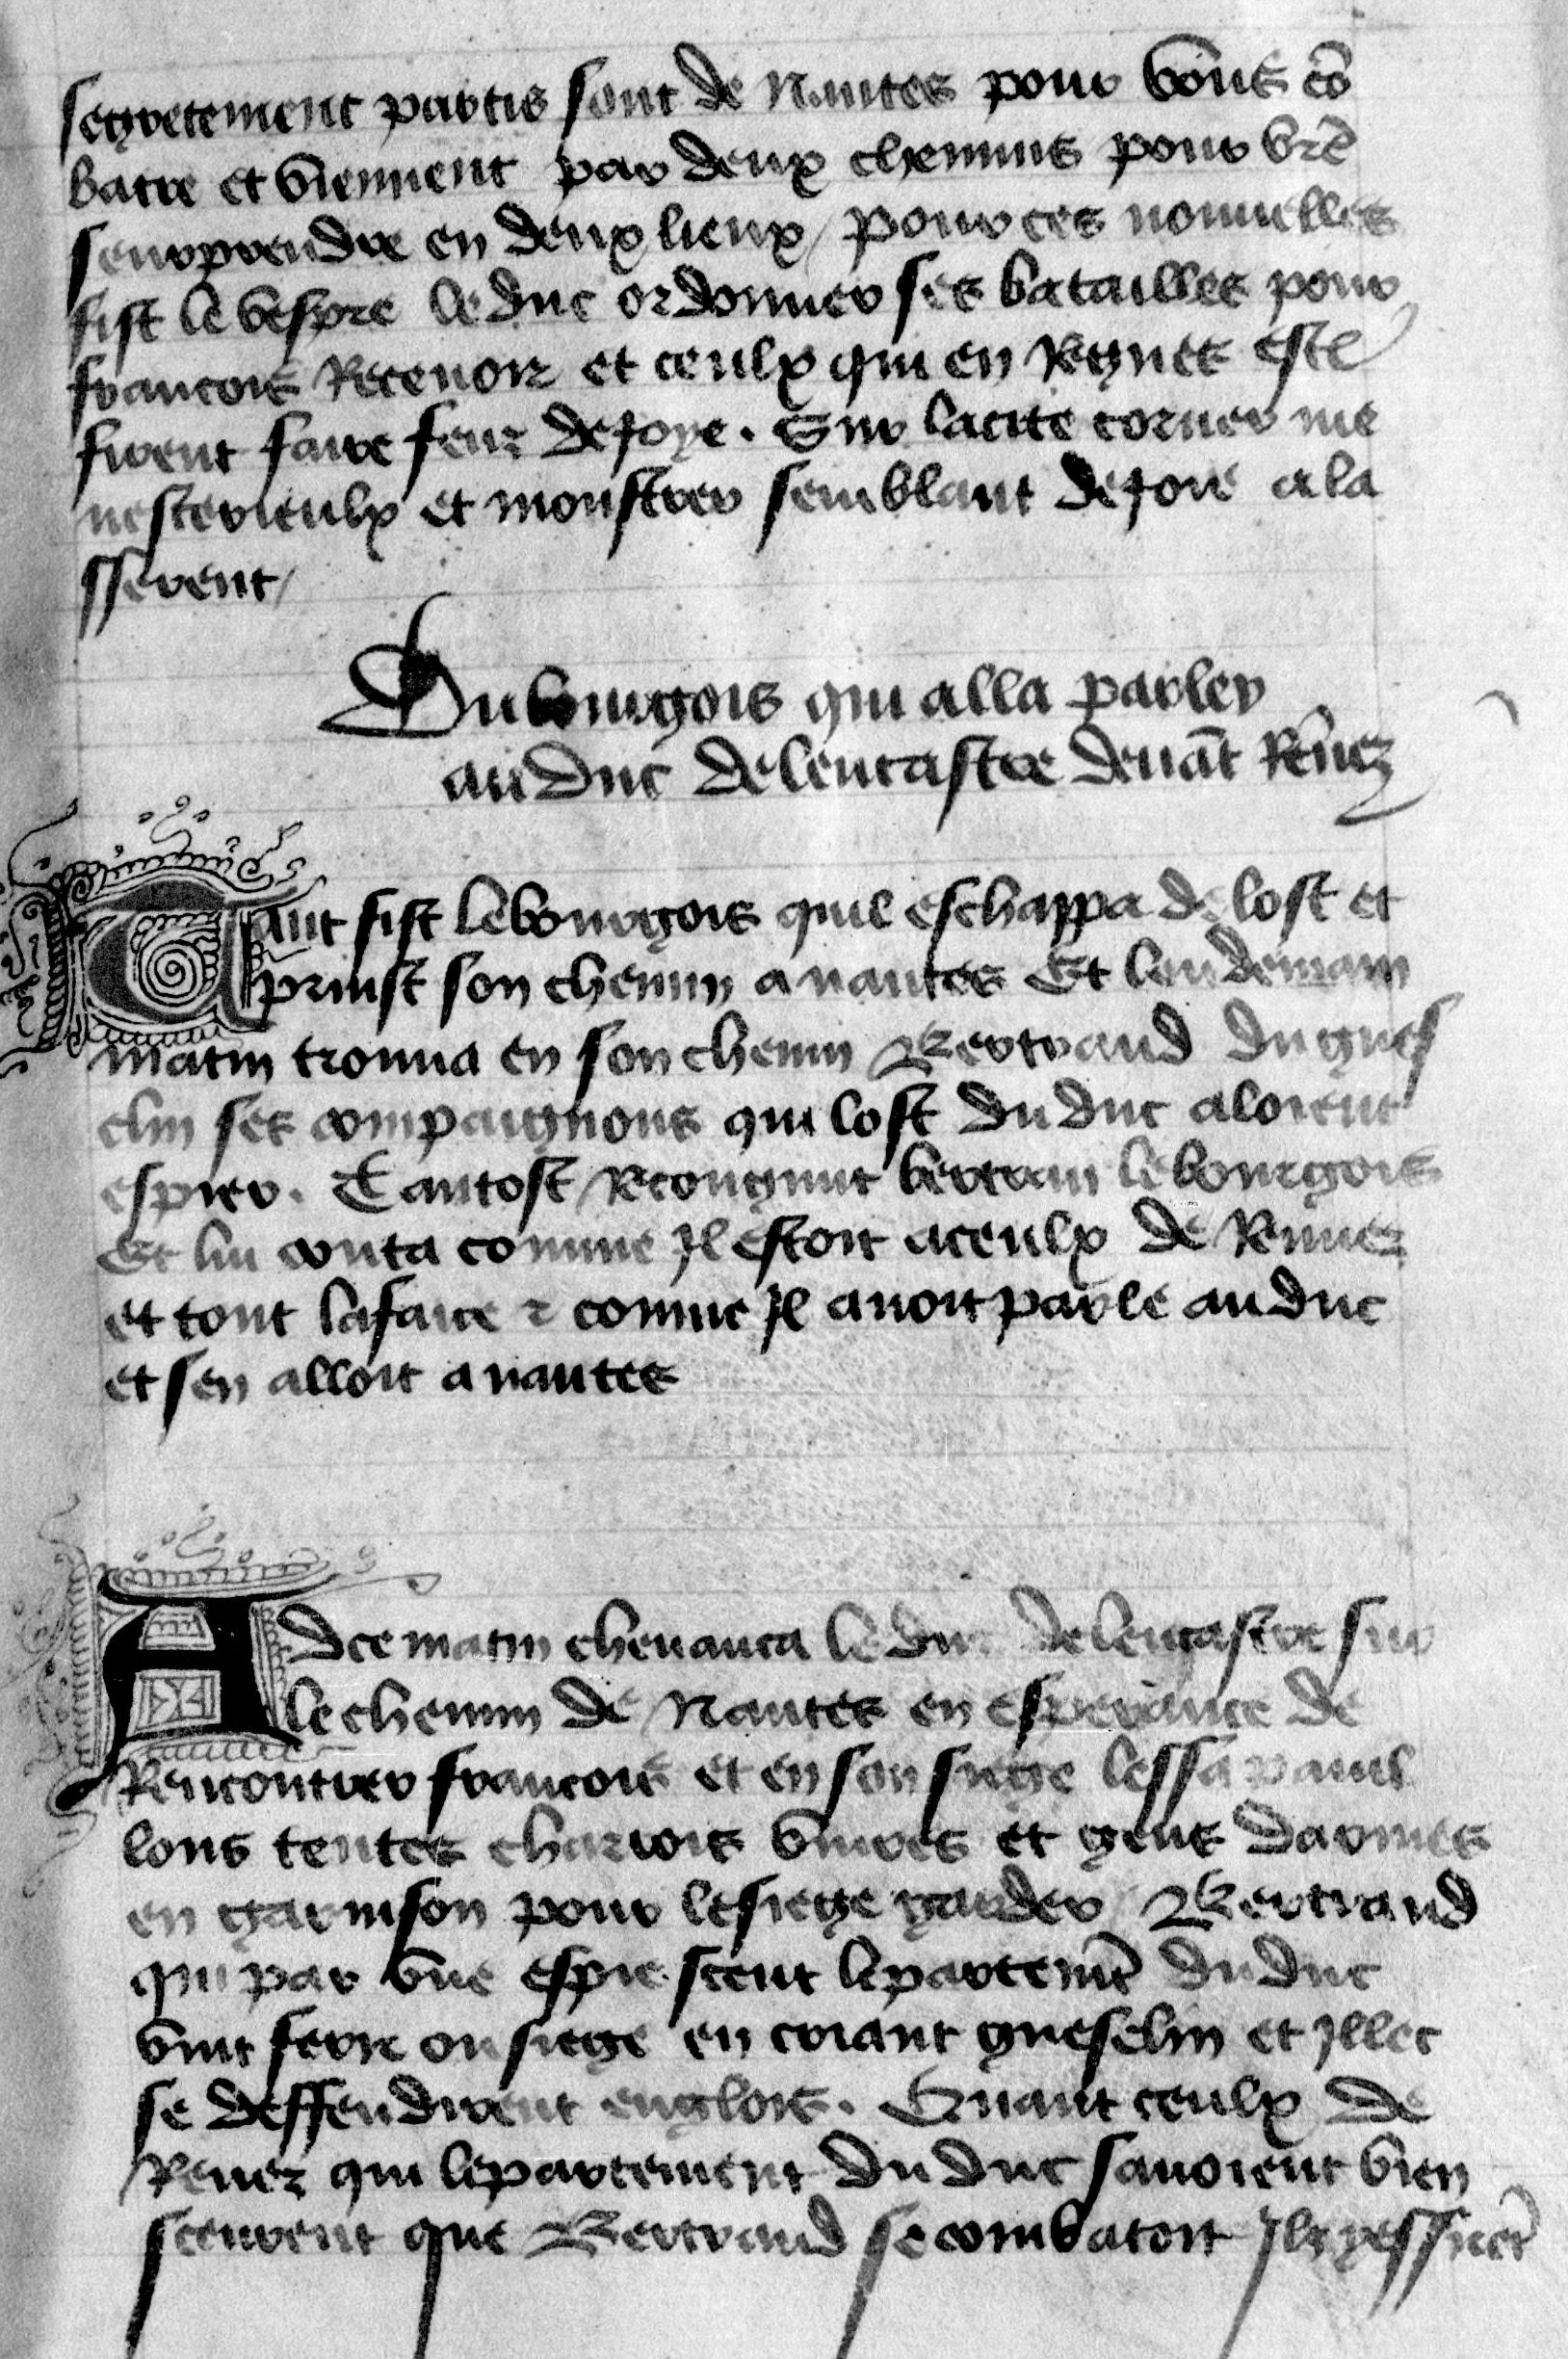 segretement partis sont de Nantes pour vo͂us co͂
batre et viennent par deux chemins pour vre͂
seurprendre en deux lieux / pour ces nouuelles
fist le vespre le duc ordonner ses batailles pour
francois Receuoir et ceulx qui en Regnes este
furent faire feuz de joye . Sur la cite corner me
nesterieulx et monstrer semblant de joie a la
sserent /
Du bourgois qui alla parler
au duc de lencastre deua͂t Re͂nez
Tant fist le bourgois quil eschappa de lost et
prinst son chemin a nantes Et lendemain
matin trouua en son chemin Bertrand du gues
clin ses compaignons qui lost du duc aloient
espier . Tantost Recongnut bertran le bourgois
Et lui conta comme Jl estoit a ceulx de Rennez
et tout lafaire ⁊ comme Jl auoit parle au duc
et sen alloit a nantes
Adce matin cheuauca le duc de lencastre sur
le chemin de Nantes en esperance de
Rencontrer francois et en son siege lessa pauil
lons tentes charrois viures et gens darmes
en garnison pour le siege garder / Bertrand
qui par vne espie sceut le parteme͂t du duc
vint ferir ou siege en criant guesclin et Jllec
se deffendirent englois . Quant ceulx de
Renez qui le partement du duc sauoient bien
sceurent que Bertrand se combatoit Jlz yssire͂t